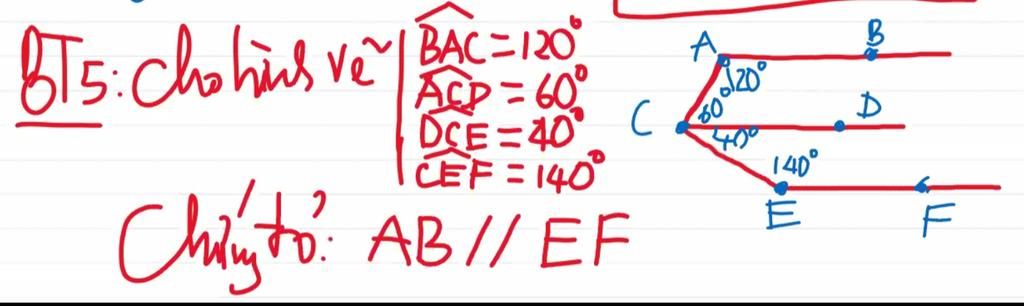 BT5: Cho hình vẽ
BAC = 120°
ACD = 60°
DCE = 40°
CEF = 140°
Chứng tỏ: AB // EF
A
B
120°
60°
C
D
40°
140°
E
F